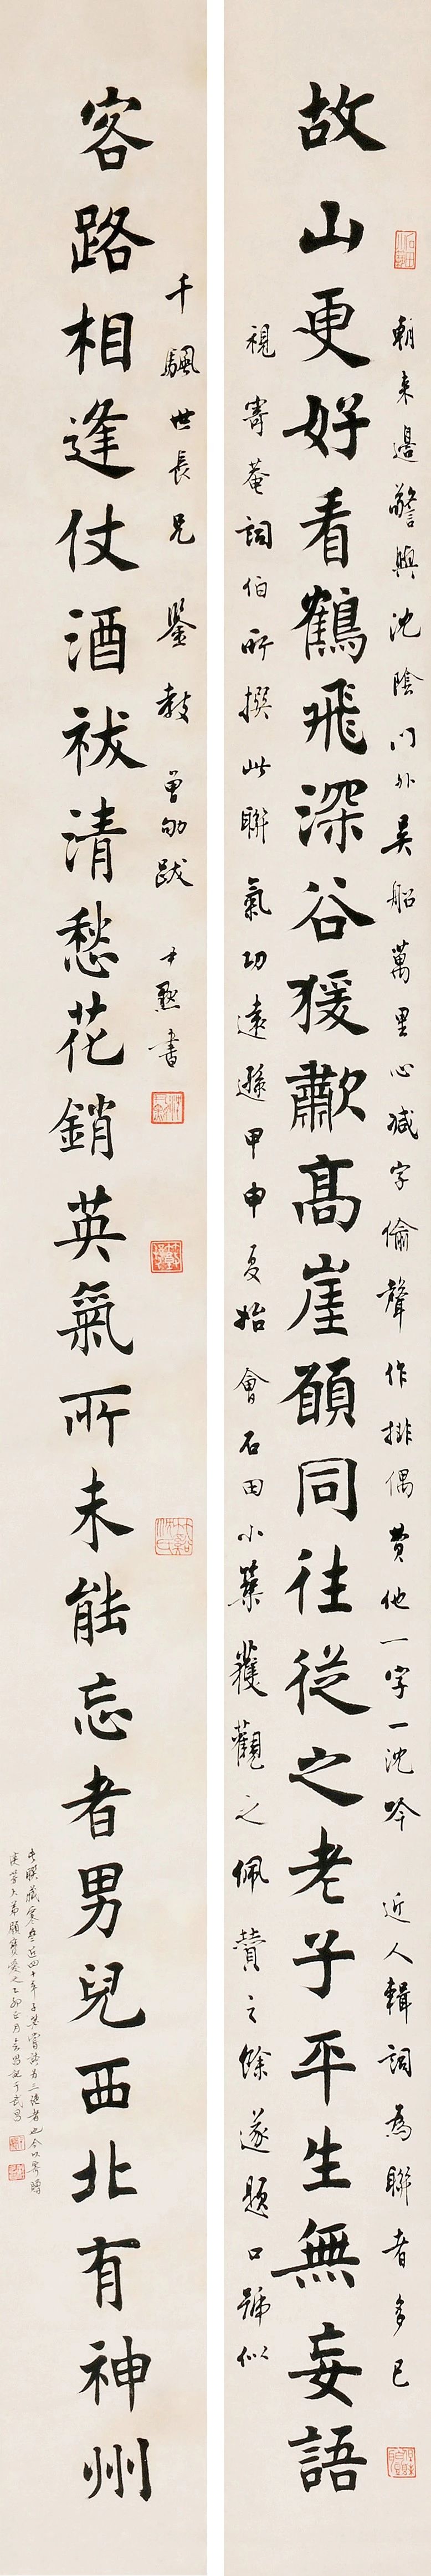 故山更好看鶴飛深谷猨歗高崖願同往從之老子平生無妄語
朝來邊警與沈陰門外吳船萬里心減字偷聲作排偶費他一字一沈吟 近人輯詞為聯者多已
視寄菴詞伯所撰此聯氣功遠遜甲申夏始會石田小築獲觀之佩贊之餘遂題口號似
客路相逢仗酒祓清愁花銷英氣所未能忘者男兒西北有神州
千颿世長兄 鑒教 曾劬跋 尹默書
此聯藏寒齋近四十年